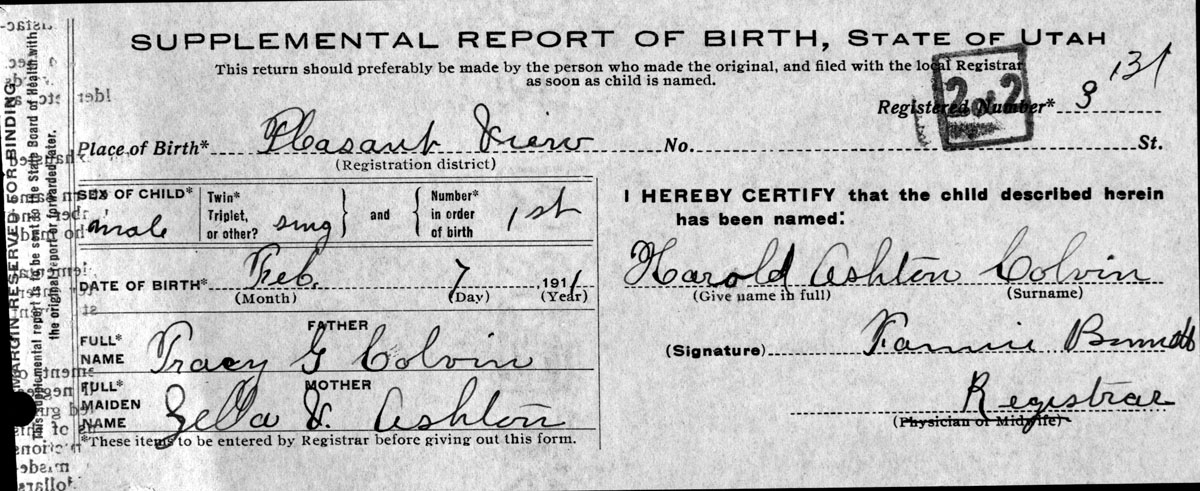 SUPPLEMENTAL REPORT OF BIRTH, STATE OF UTAH
This return should preferably be made by the person who made the original, and filed with the local Registrar
as soon as child is named.
131
2 2
Registered Number* 3
Place of Birth* Pleasant View No. St.
(Registration district)
SEX OF CHILD* male
Twin* Triplet, or other? sing } and { Number* in order of birth 1st
DATE OF BIRTH* Feb. 7, 1911
(Month) (Day) (Year)
FATHER
FULL* NAME Tracy G Colvin
MOTHER
FULL* MAIDEN NAME Zella V. Ashton
*These items to be entered by Registrar before giving out this form.
I HEREBY CERTIFY that the child described herein
has been named:
Harold Ashton Colvin
(Give name in full) (Surname)
(Signature) Fannie
Registrar
(Physician or Midwife)
MARGIN RESERVED FOR BINDING
This supplemental report is to be sent to the State Board of Health with
the original report or forwarded later.